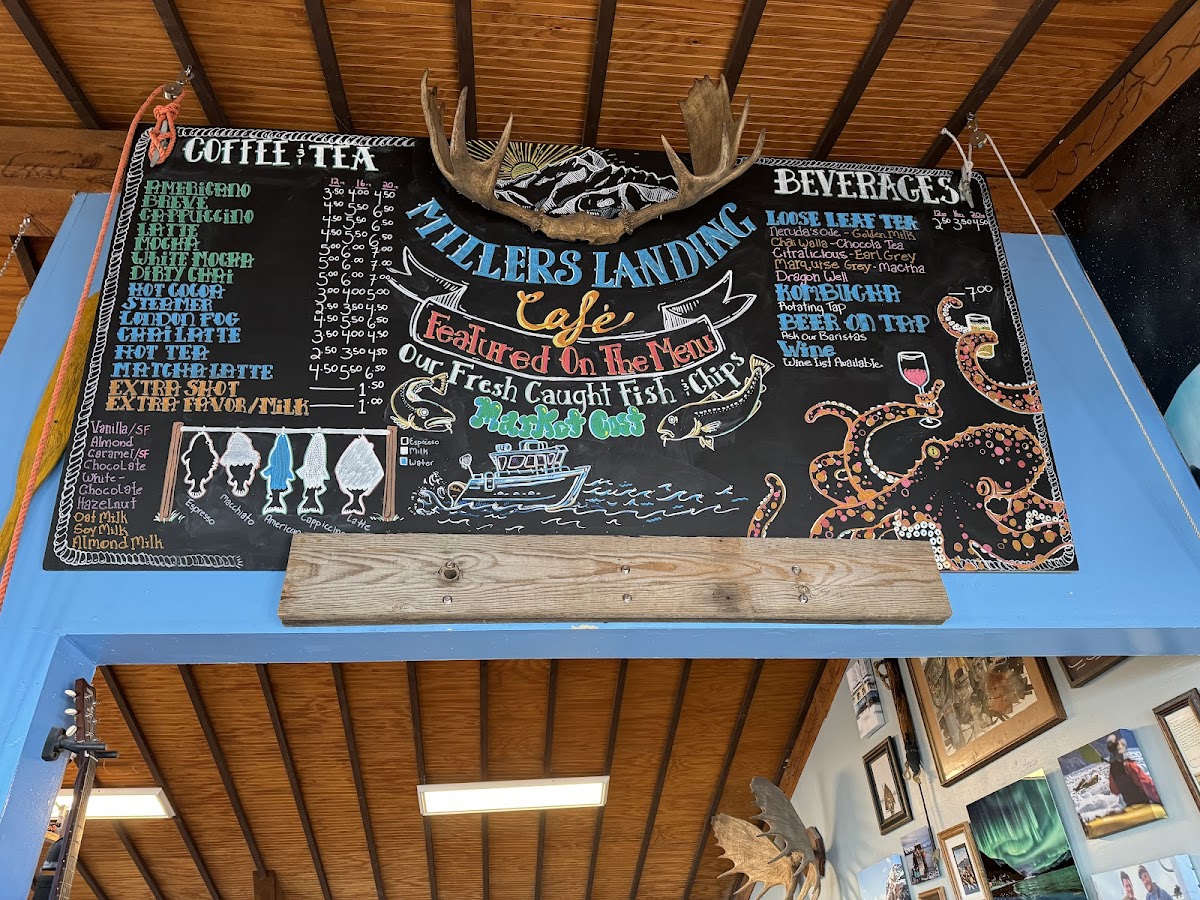 COFFEE & TEA
12oz 16oz 20oz
AMERICANO 3.50 4.00 4.50
BREVE 4.50 5.50 6.50
CAPPUCCINO 4.50 5.50 6.50
LATTE 4.50 5.50 6.50
MOCHA 5.00 6.00 7.00
WHITE MOCHA 5.00 6.00 7.00
DIRTY CHAI 5.00 6.00 7.00
HOT COCOA 3.00 4.00 5.00
STEAMER
LONDON FOG 4.50 5.50 6.50
CHAI LATTE 3.50 4.00 4.50
HOT TEA 2.50 3.50 4.50
MATCHA LATTE 4.50 5.50 6.50
EXTRA SHOT 1.50
EXTRA FAVOR/MILK 1.00
Vanilla/SF
Almond
Caramel/SF
Chocolate
White-
Chocolate
Hazelnut
Oat Milk
Soy Milk
Almond Milk
Espresso
Macchiato
American
Cappuccin
Latte
Espresso
Milk
Water
MILLERS LANDING
Café
Featured On The Menu
Our Fresh Caught Fish & Chip's
Market Cost
BEVERAGES
12oz 16oz 20oz
LOOSE LEAF TEA 2.50 3.50 4.50
Neruda's Ode - Golden Milk
Chai Walla - Chocola Tea
Citralicious - Earl Grey
Marquise Grey - mactha
Dragon Well
KOMBUCHA — 7.00
Rotating Tap
BEER ON TAP
Ask Our Baristas
Wine
Wine List Available